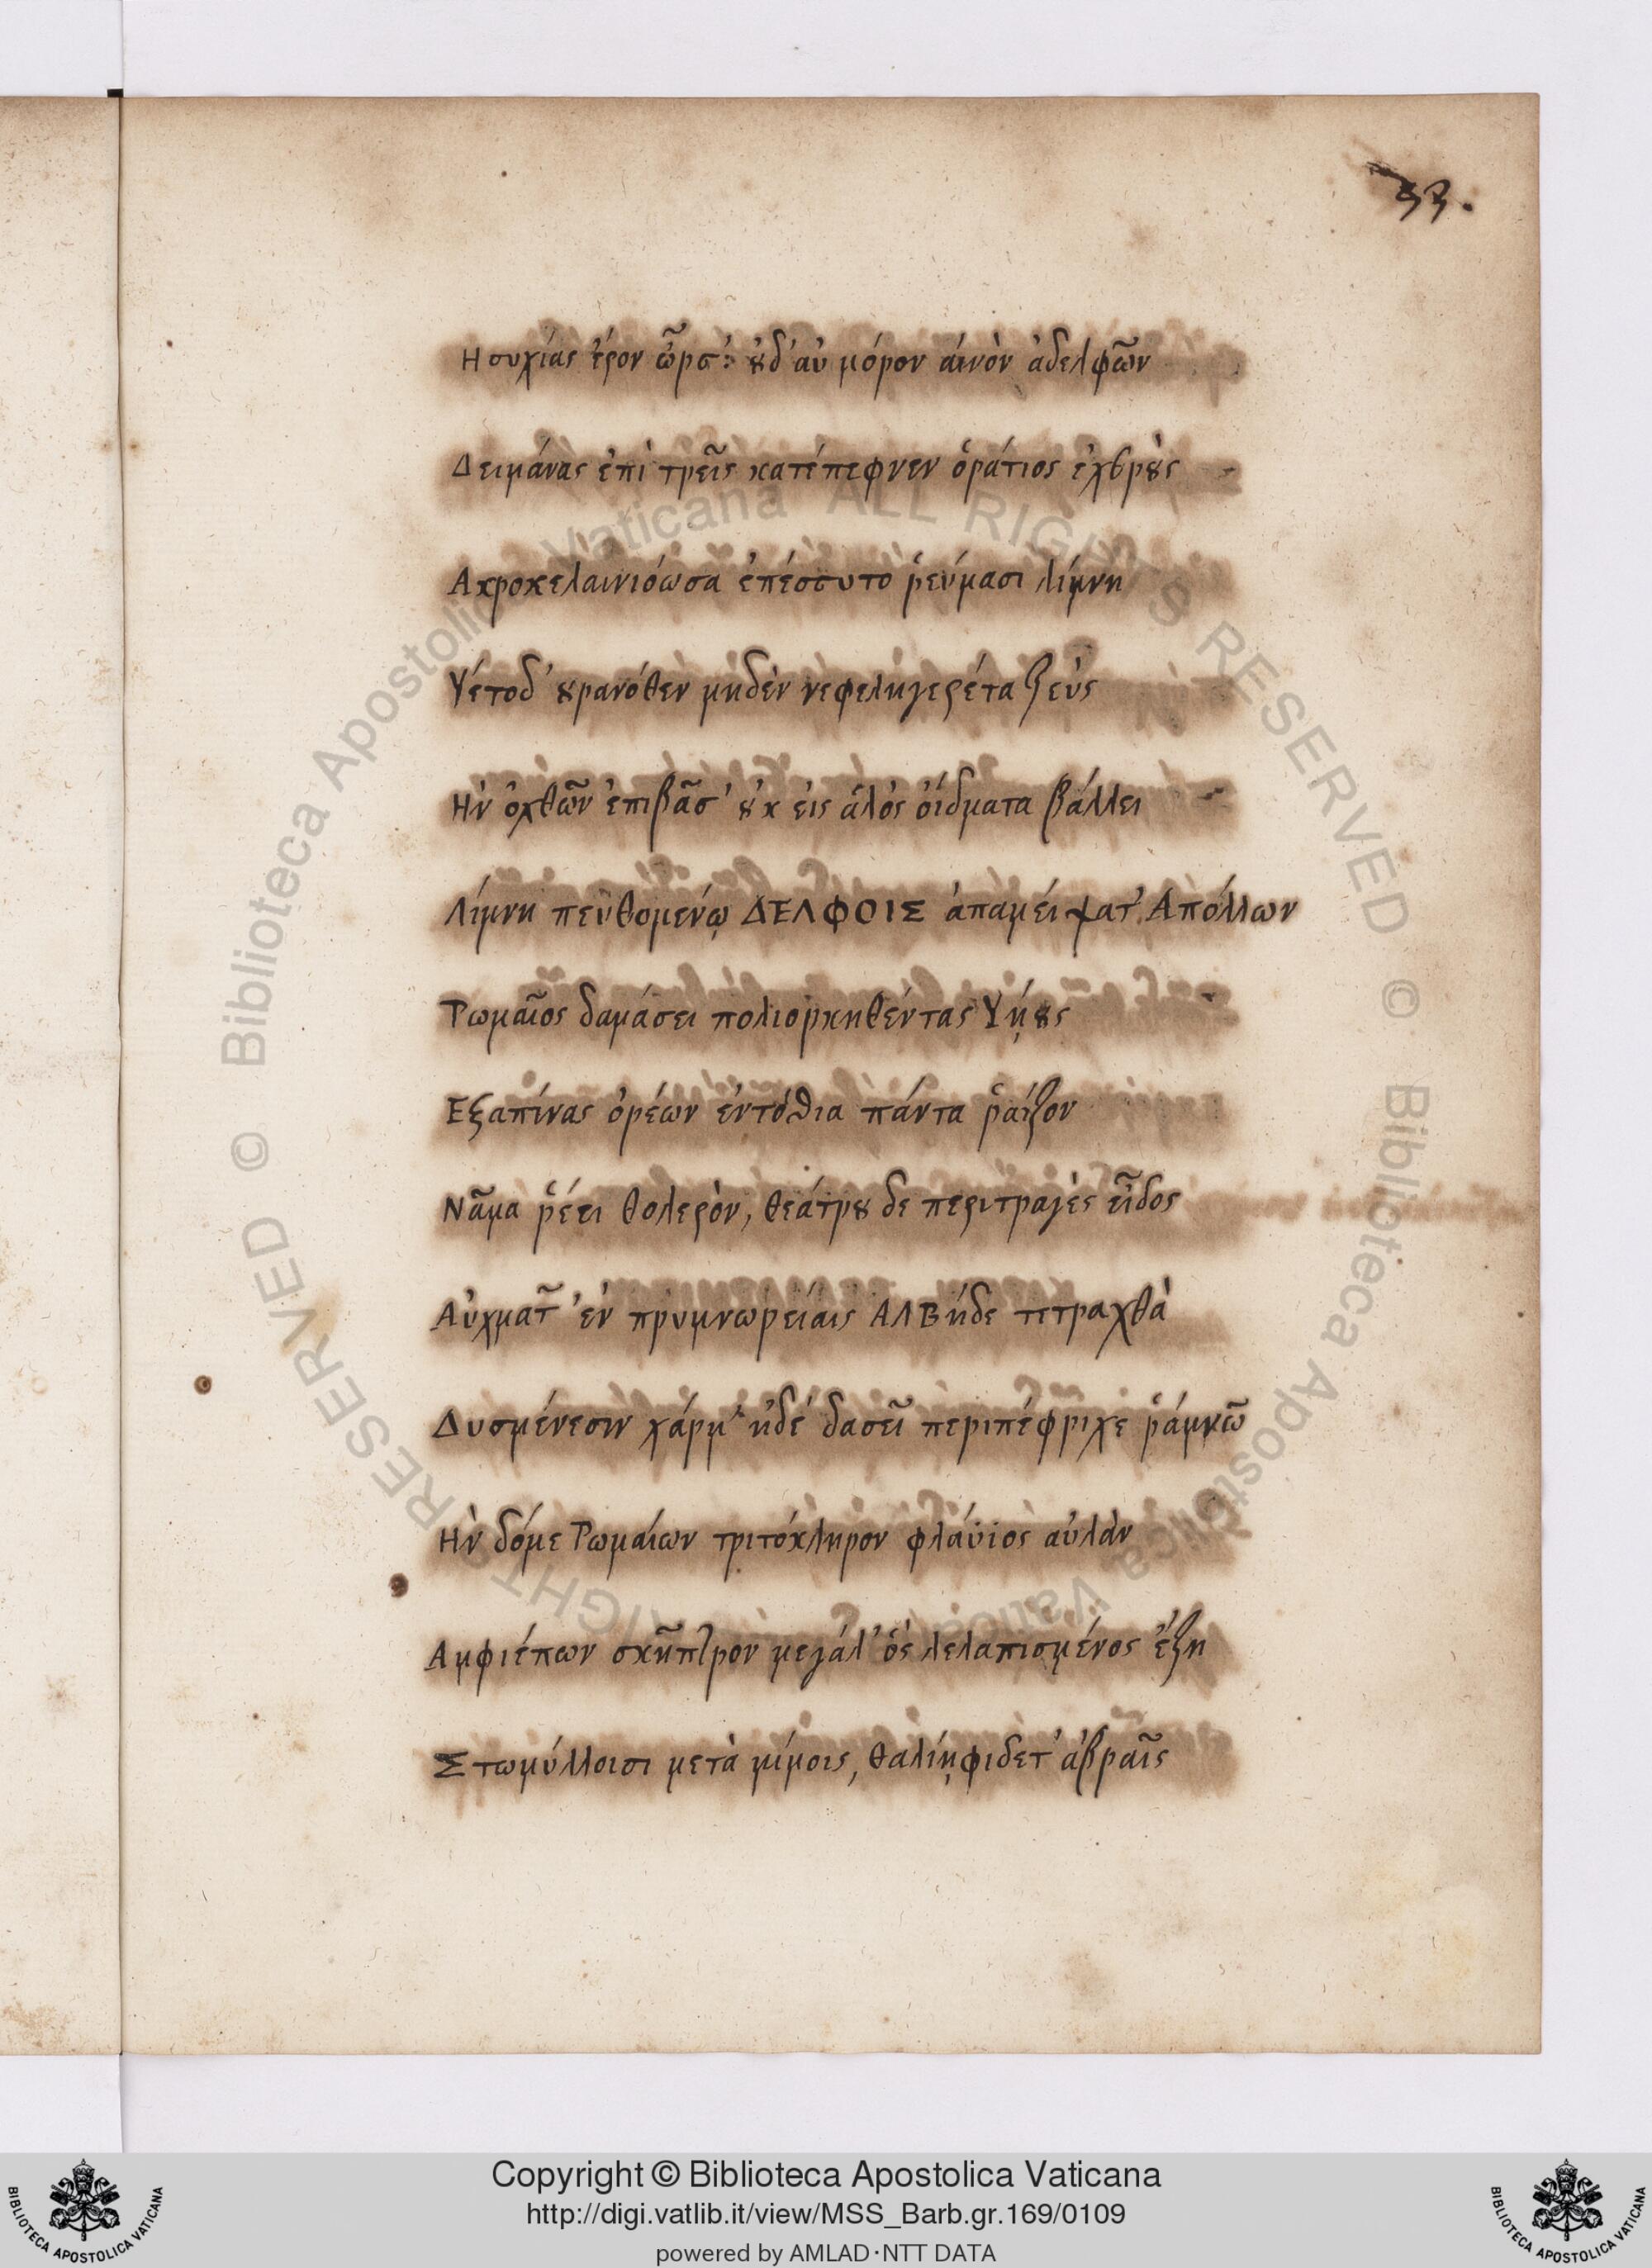 33.
Ησυχίας ἔρον ὦρσ': ȣ̓δ' αὐ μόρον ἀινὸν ἀδελφῶν
Δειμάνας ἐπὶ τρεῖς κατέπεφνεν ὁράτιος ἐχθρȣ̀ς
Ακροκελαινιόωσα ἐπέσσυτο ῥεύμασι λίμνη
Υέτοδ' ȣ̓ρανόθεν μηδὲν νεφεληγερέτα ζεύς
Ην ὀχθῶν ἐπιβᾶσ' ȣ̓κ ἐις ἁλὸς ὀίδματα βάλλει
Λίμνη πευθομενῳ ΔΕΛΦΟΙΣ ἀπαμείψατ' Απόλλων
Ρωμαῖος δαμάσει πολιορκηθέντας Υήȣς
Εξαπίνας ὀρέων ἐντόθια πάντα ῥαίζον
Νᾶμα ῥέει θολερὸν, θεάτρȣ δε περιτραγὲς εἶδος
Αὐχματ' ἐν πρυμνωρείαις ΑΛΒήδε τετραχθὰ
Δυσμένεσιν χάρμ' ηδέ δασεῖ περιπέφρικε ῥάμνω
Ην δόμε Ρωμαίων τριτόκληρον φλάϋϊος αὐλὰν
Αμφιέπων σκῆπτρον μεγάλ' ὁς λελαπισμένος ἔζη
Στωμύλλοισι μετὰ μίμοις, θαλίηφιδετ' ἁβραῖς
Copyright © Biblioteca Apostolica Vaticana
http://digi.vatlib.it/view/MSS_Barb.gr.169/0109
powered by AMLAD·NTT DATA